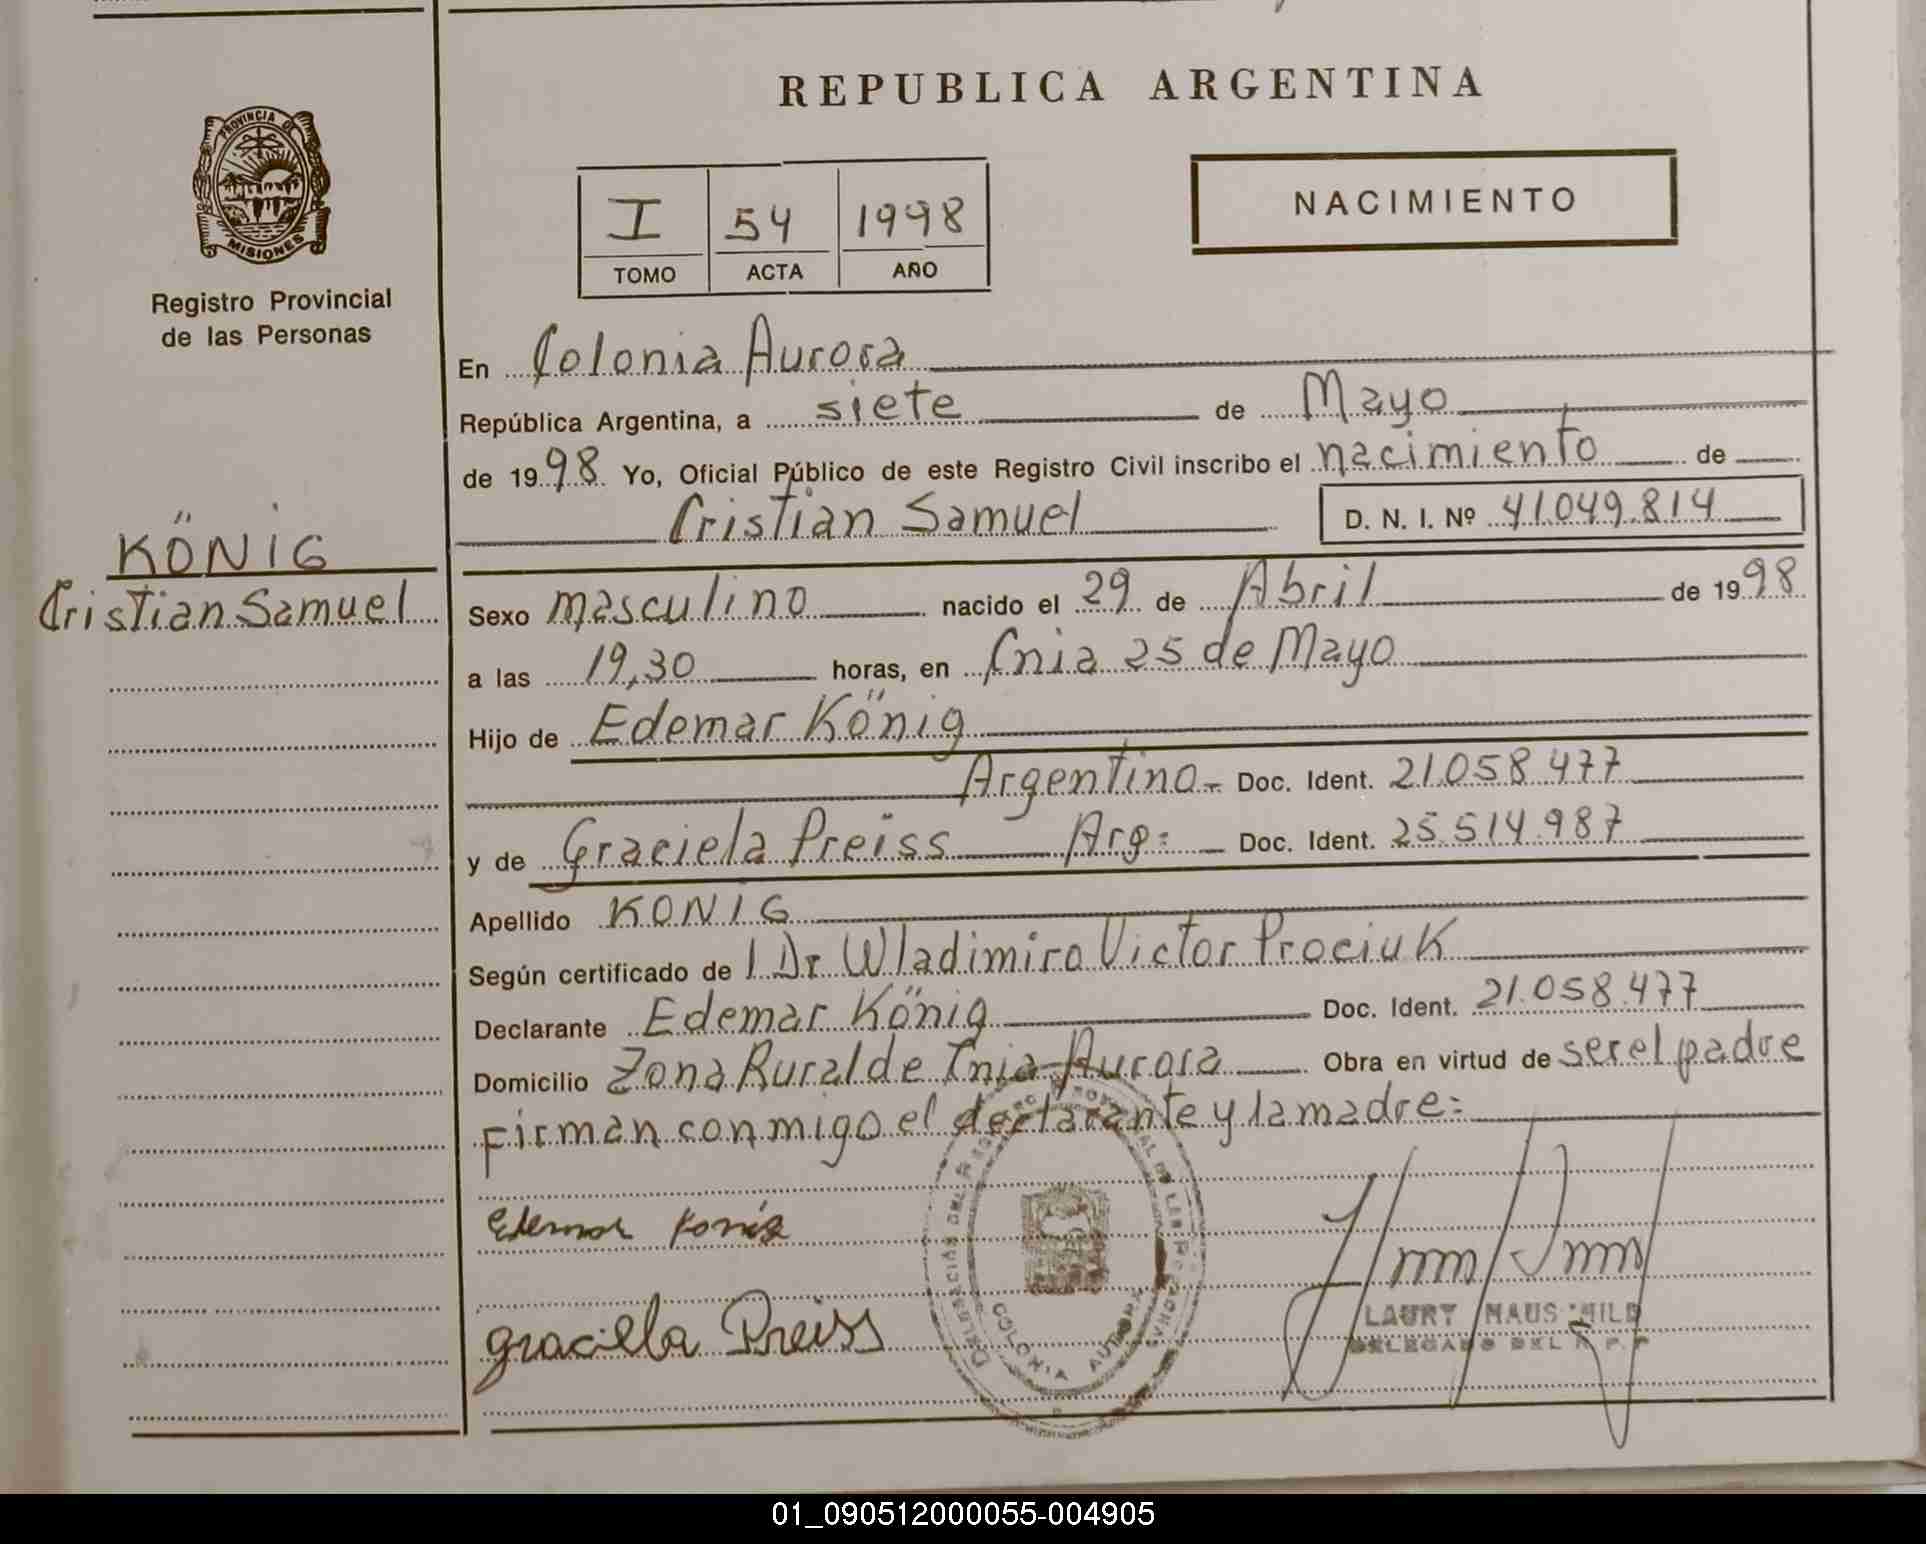 REPUBLICA ARGENTINA
PROVINCIA DE
MISIONES
Registro Provincial
de las Personas
I 54 1998
TOMO ACTA AÑO
NACIMIENTO
En Colonia Aurora
República Argentina, a siete de Mayo
de 1998 Yo, Oficial Público de este Registro Civil inscribo el nacimiento de
Cristian Samuel D. N. I. Nº 41.049.814
KÖNIG
Cristian Samuel
Sexo masculino nacido el 29 de Abril de 1998
a las 19,30 horas, en Cnia 25 de Mayo
Hijo de Edemar König
Argentino.- Doc. Ident. 21.058.477
y de Graciela Preiss Arg: Doc. Ident. 25.514.987
Apellido KONIG
Según certificado de l Dr Wladimiro Victor Prociuk
Declarante Edemar König Doc. Ident. 21.058.477
Domicilio Zona Rural de Cnia Aurora Obra en virtud de ser el padre
Firman conmigo el declarante y la madre:
Edemar König
graciela Preiss
COLONIA AURORA
LAURY HAUS HILD
DELEGADO DEL R. P. P
01_090512000055-004905